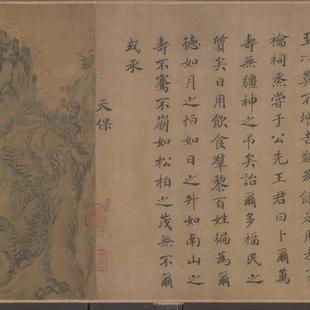 至以莫不增吉蠲為饎是用孝
禴祠烝嘗于公先王君曰卜爾萬
壽無疆神之弔矣詒爾多福民之
質矣日用飲食羣黎百姓徧為爾
德如月之恒如日之升如南山之
壽不騫不崩如松柏之茂無不爾
或承
天保